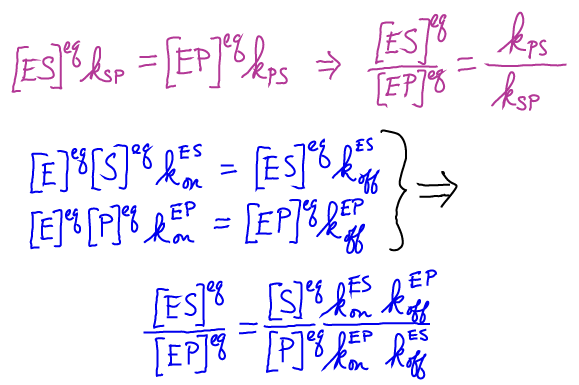 [ES]^eq k_SP = [EP]^eq k_PS ⇒ [ES]^eq / [EP]^eq = k_PS / k_SP
[E]^eq [S]^eq k_on^ES = [ES]^eq k_off^ES
[E]^eq [P]^eq k_on^EP = [EP]^eq k_off^EP } ⇒
[ES]^eq / [EP]^eq = [S]^eq k_on^ES k_off^EP / [P]^eq k_on^EP k_off^ES